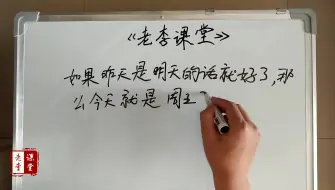 《老李课堂》
如果昨天是明天的话就好了,那
么今天就是周五
老李
课堂